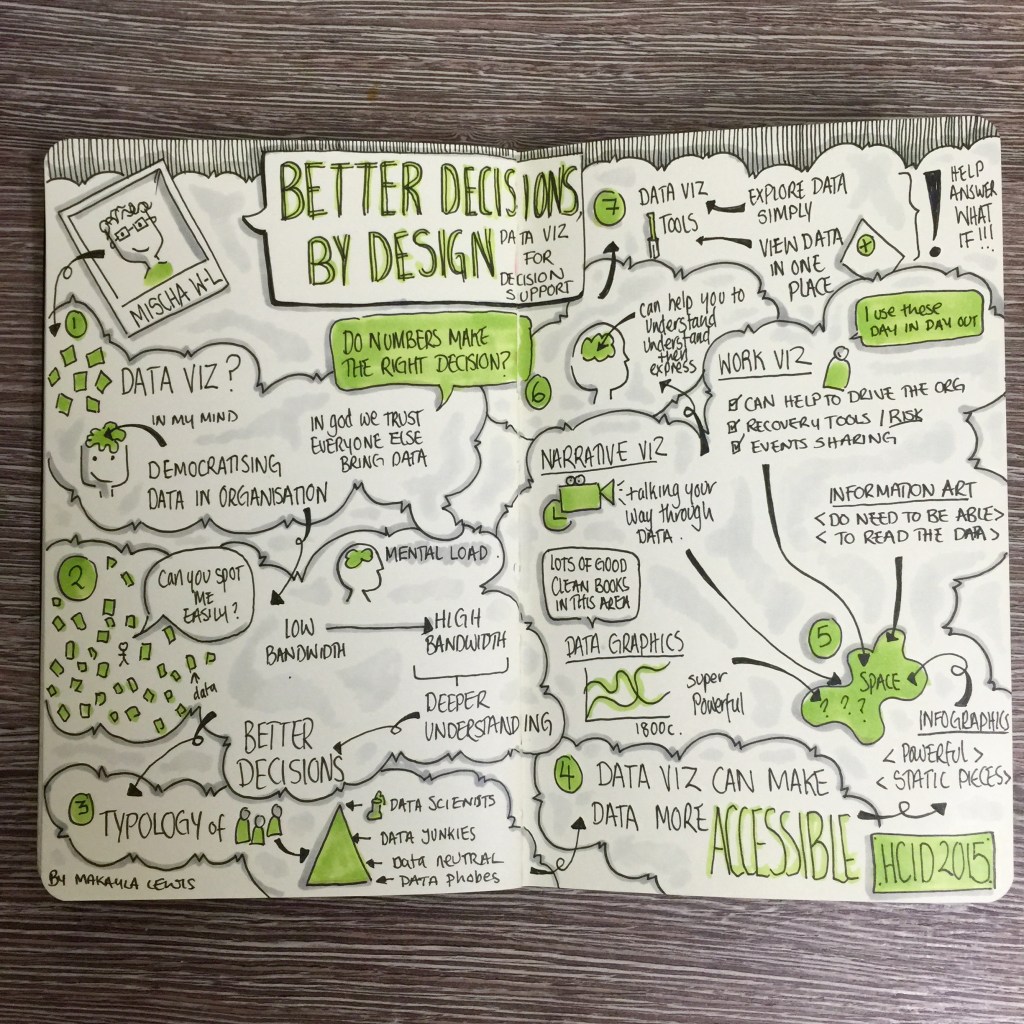 BETTER DECISIONS
BY DESIGN
DATA VIZ
FOR
DECISION
SUPPORT
MISCHA W-L
1
DATA VIZ?
DO NUMBERS MAKE
THE RIGHT DECISION?
IN MY MIND
DEMOCRATISING
DATA IN ORGANISATION
IN god WE TRUST
EVERYONE ELSE
BRING DATA
2
Can you SPOT
ME
EASILY?
data
MENTAL LOAD
LOW
BANDWIDTH
HIGH
BANDWIDTH
DEEPER
UNDERSTANDING
BETTER
DECISIONS
3
TYPOLOGY of
DATA SCIENTISTS
DATA JUNKIES
Data NEUTRAL
DATA Phobes
BY MAKAYLA LEWIS
4
DATA VIZ CAN MAKE
DATA MORE
ACCESSIBLE
HCID 2015
5
SPACE
? ? ?
INFORMATION ART
< DO NEED TO BE ABLE >
< TO READ THE DATA >
INFOGRAPHICS
< POWERFUL >
< STATIC PIECES >
NARRATIVE VIZ
talking your
way through
DATA.
LOTS OF GOOD
CLEAN BOOKS
IN THIS AREA
DATA GRAPHICS
super
Powerful
1800c.
WORK VIZ
CAN HELP TO DRIVE THE ORG
RECOVERY TOOLS / RISK
EVENTS SHARING
I use these
DAY IN DAY OUT
6
can help you to
understand
understand
then
express
7
DATA VIZ
TOOLS
EXPLORE DATA
SIMPLY
VIEW DATA
IN ONE
PLACE
! HELP
ANSWER
WHAT
IF !!!